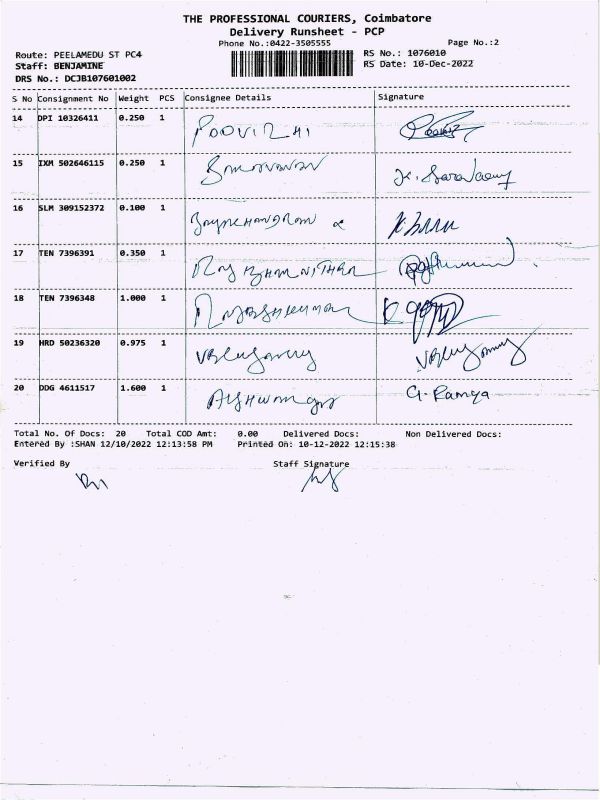 THE PROFESSIONAL COURIERS, Coimbatore
Delivery Runsheet - PCP
Phone No.:0422-3505555 Page No.:2
Route: PEELAMEDU ST PC4 RS No.: 1076010
Staff: BENJAMINE RS Date: 10-Dec-2022
DRS No.: DCJB107601002
S No Consignment No Weight PCS Consignee Details Signature
14 DPI 10326411 0.250 1 POOVIZHI
15 IXM 502646115 0.250 1 K. Saravanan
16 SLM 309152372 0.100 1
17 TEN 7396391 0.350 1
18 TEN 7396348 1.000 1
19 HRD 50236320 0.975 1
20 DDG 4611517 1.600 1 G. Ramya
Total No. Of Docs: 20 Total COD Amt: 0.00 Delivered Docs: Non Delivered Docs:
Entered By :SHAN 12/10/2022 12:13:58 PM Printed On: 10-12-2022 12:15:38
Verified By Staff Signature